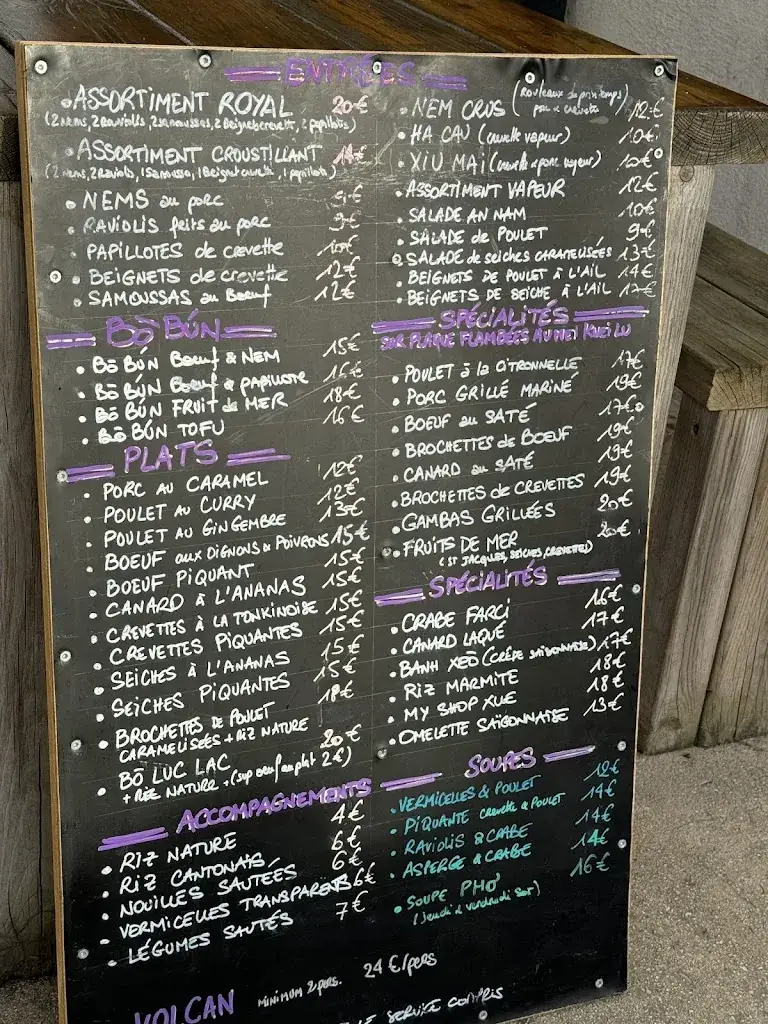 ENTRÉES
ASSORTIMENT ROYAL 20€
(2 nems, 2 raviolis, 2 samoussas, 2 Beignets crevette, 2 papillotes)
ASSORTIMENT CROUSTILLANT 14€
(2 nems, 2 Raviolis, 1 Samoussa, 1 Beignet crevette, 1 papillote)
NEMS au porc 9€
RAVIOLIS frits au porc 9€
PAPILLOTES de crevette
BEIGNETS de crevette 12€
SAMOUSSAS au Boeuf 12€
BÒ BÚN
BÒ BÚN Boeuf & NEM 15€
BÒ BÚN Boeuf & PAPILLOTE 16€
BÒ BÚN FRUIT de MER 18€
BÒ BÚN TOFU 16€
PLATS
PORC AU CARAMEL 12€
POULET AU CURRY 12€
POULET AU GINGEMBRE 13€
BOEUF aux OIGNONS & POIVRONS 15€
BOEUF PIQUANT 15€
CANARD À L'ANANAS 15€
CREVETTES À LA TONKINOISE 15€
CREVETTES PIQUANTES 15€
SEICHES À L'ANANAS 15€
SEICHES PIQUANTES 15€
BROCHETTES DE POULET 18€
CARAMELISÉES + RIZ NATURE
BÒ LUC LAC 20€
+ RIZ NATURE + (sup oeuf au plat 2€)
ACCOMPAGNEMENTS
RIZ NATURE 4€
RIZ CANTONAIS 6€
NOUILLES SAUTEÉS 6€
VERMICELLES TRANSPARENTS 6€
LÉGUMES SAUTÉS 7€
NEM CRUS (Rouleaux de printemps) 12€
porc & crevette
HA CAU (crevette vapeur) 10€
XIU MAI (crevette & porc vapeur) 10€
ASSORTIMENT VAPEUR 12€
SALADE AN NAM 10€
SALADE de POULET 9€
SALADE de seiches CARAMELISÉES 13€
BEIGNETS DE POULET À L'AIL 14€
BEIGNETS DE SEICHE À L'AIL
SPÉCIALITÉS
SUR PLAQUE FLAMBÉES AU MEI KWEI LU
POULET à la CITRONNELLE 17€
PORC GRILLÉ MARINÉ 19€
BOEUF au SATÉ 17€
BROCHETTES de BOEUF 19€
CANARD au SATÉ 19€
BROCHETTES de CREVETTES 19€
GAMBAS GRILLÉES 20€
FRUITS DE MER 20€
(ST JACQUES, SEICHES, CREVETTES)
SPÉCIALITÉS
CRABE FARCI 16€
CANARD LAQUÉ 17€
BANH XEÒ (CRÊPE SAÏGONNAISE) 17€
RIZ MARMITE 18€
MY SHOP XUE 18€
OMELETTE SAÏGONNAISE 13€
SOUPES
VERMICELLES & POULET 12€
PIQUANTE crevette & POULET 14€
RAVIOLIS & CRABE 14€
ASPERGE & CRABE 14€
SOUPE PHƠ 16€
(jeudi & vendredi soir)
VOLCAN MINIMUM 2 pers. 24€/pers
SERVICE COMPRIS